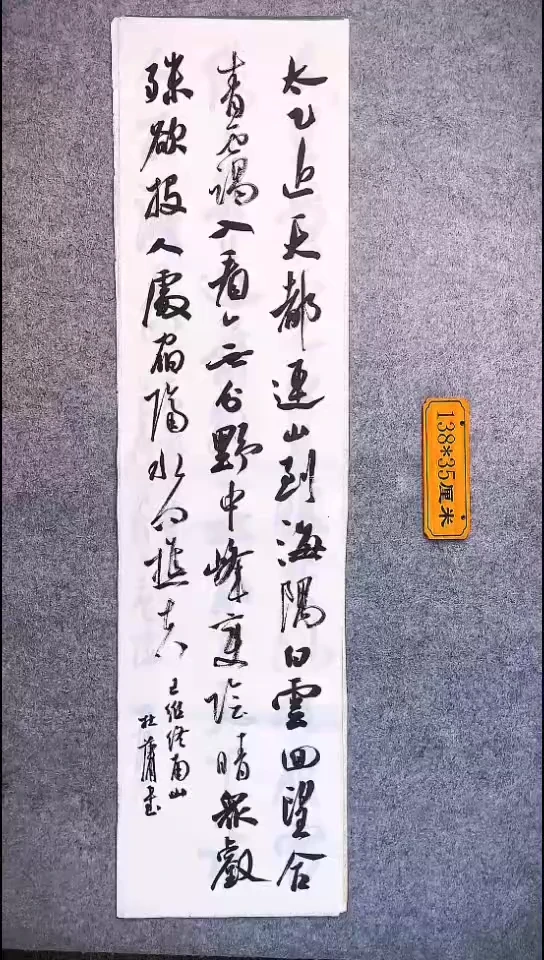 太乙近天都連山到海隅白雲回望合
青靄入看無分野中峰變陰晴眾壑
殊欲投人處宿隔水問樵夫
王維終南山
杜書
138*35厘米